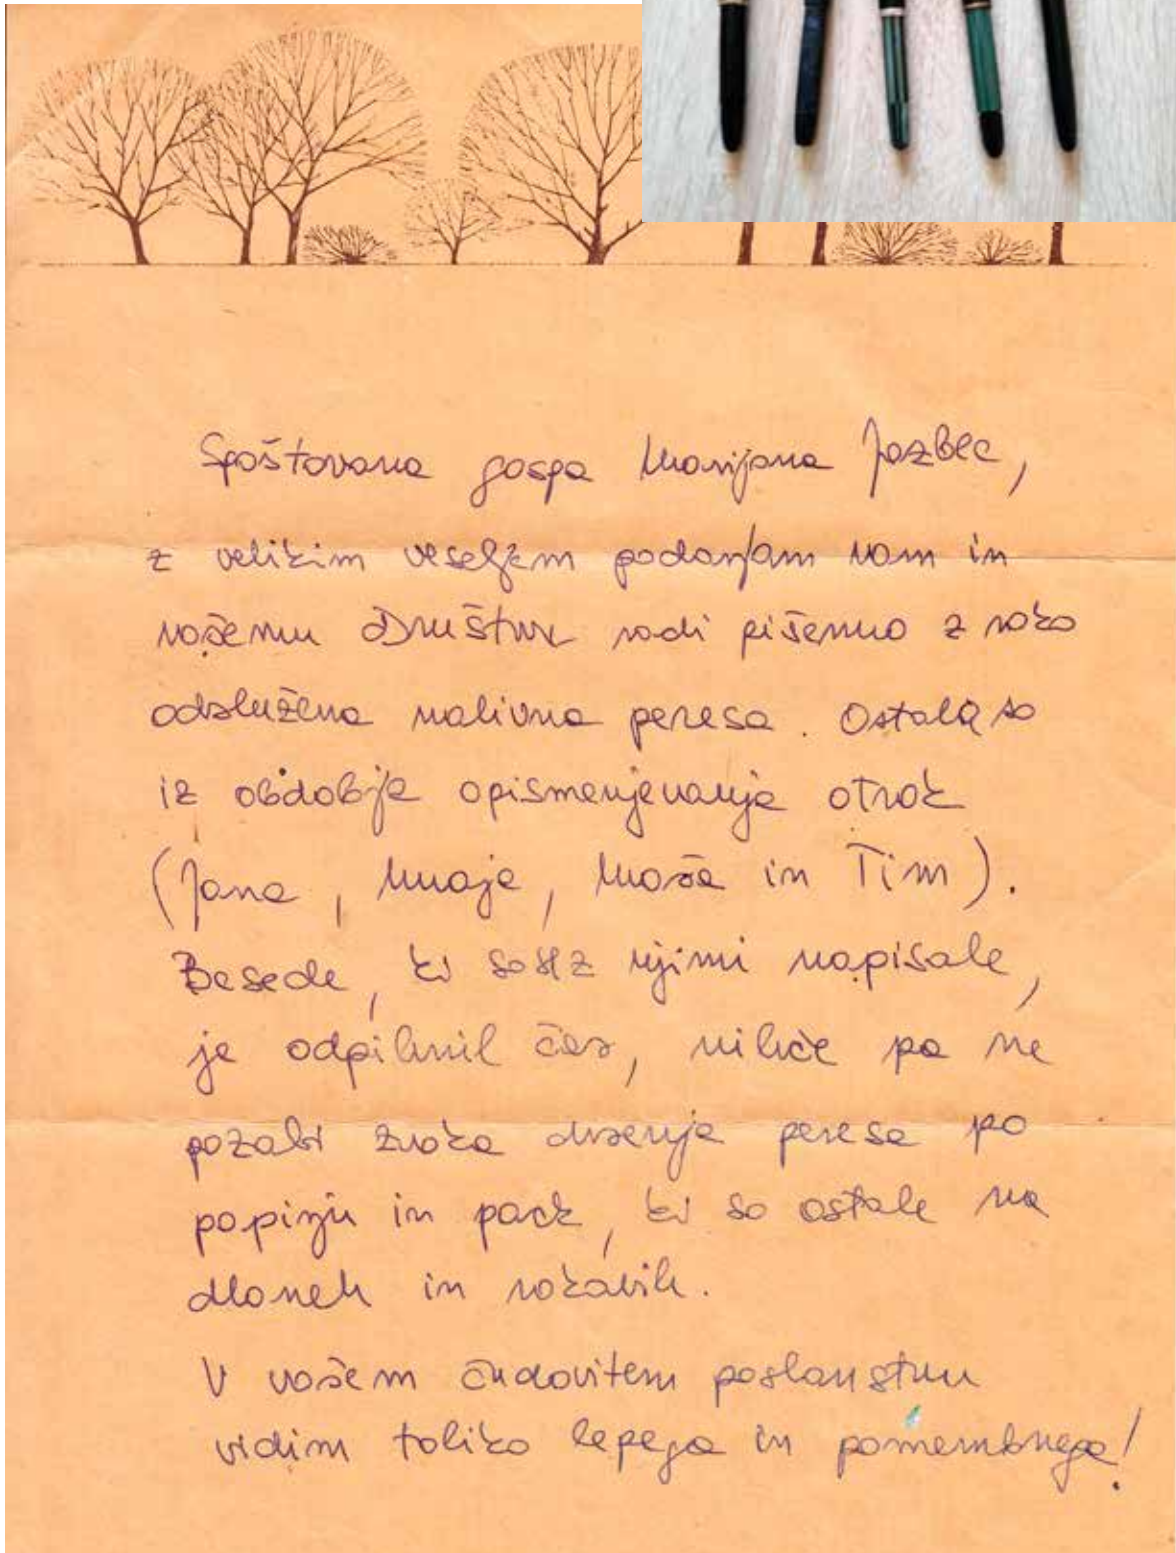 Spoštovana gospa Marijana Jazbec,
z velikim veseljem podarjam vam in
vašemu Društvu radi pišemo z roko
odslužena nalivna peresa. Ostala so
iz obdobja opismenjevanja otrok
(Jana, Maja, Maša in Tim).
Besede, ki so z njimi napisale,
je odpihnil čas, nihče pa ne
pozabi zvoka drsenja peresa po
papirju in pack, ki so ostale na
dloneh in rokavih.
V vašem čudovitem poslanstvu
vidim toliko lepega in pomembnega!